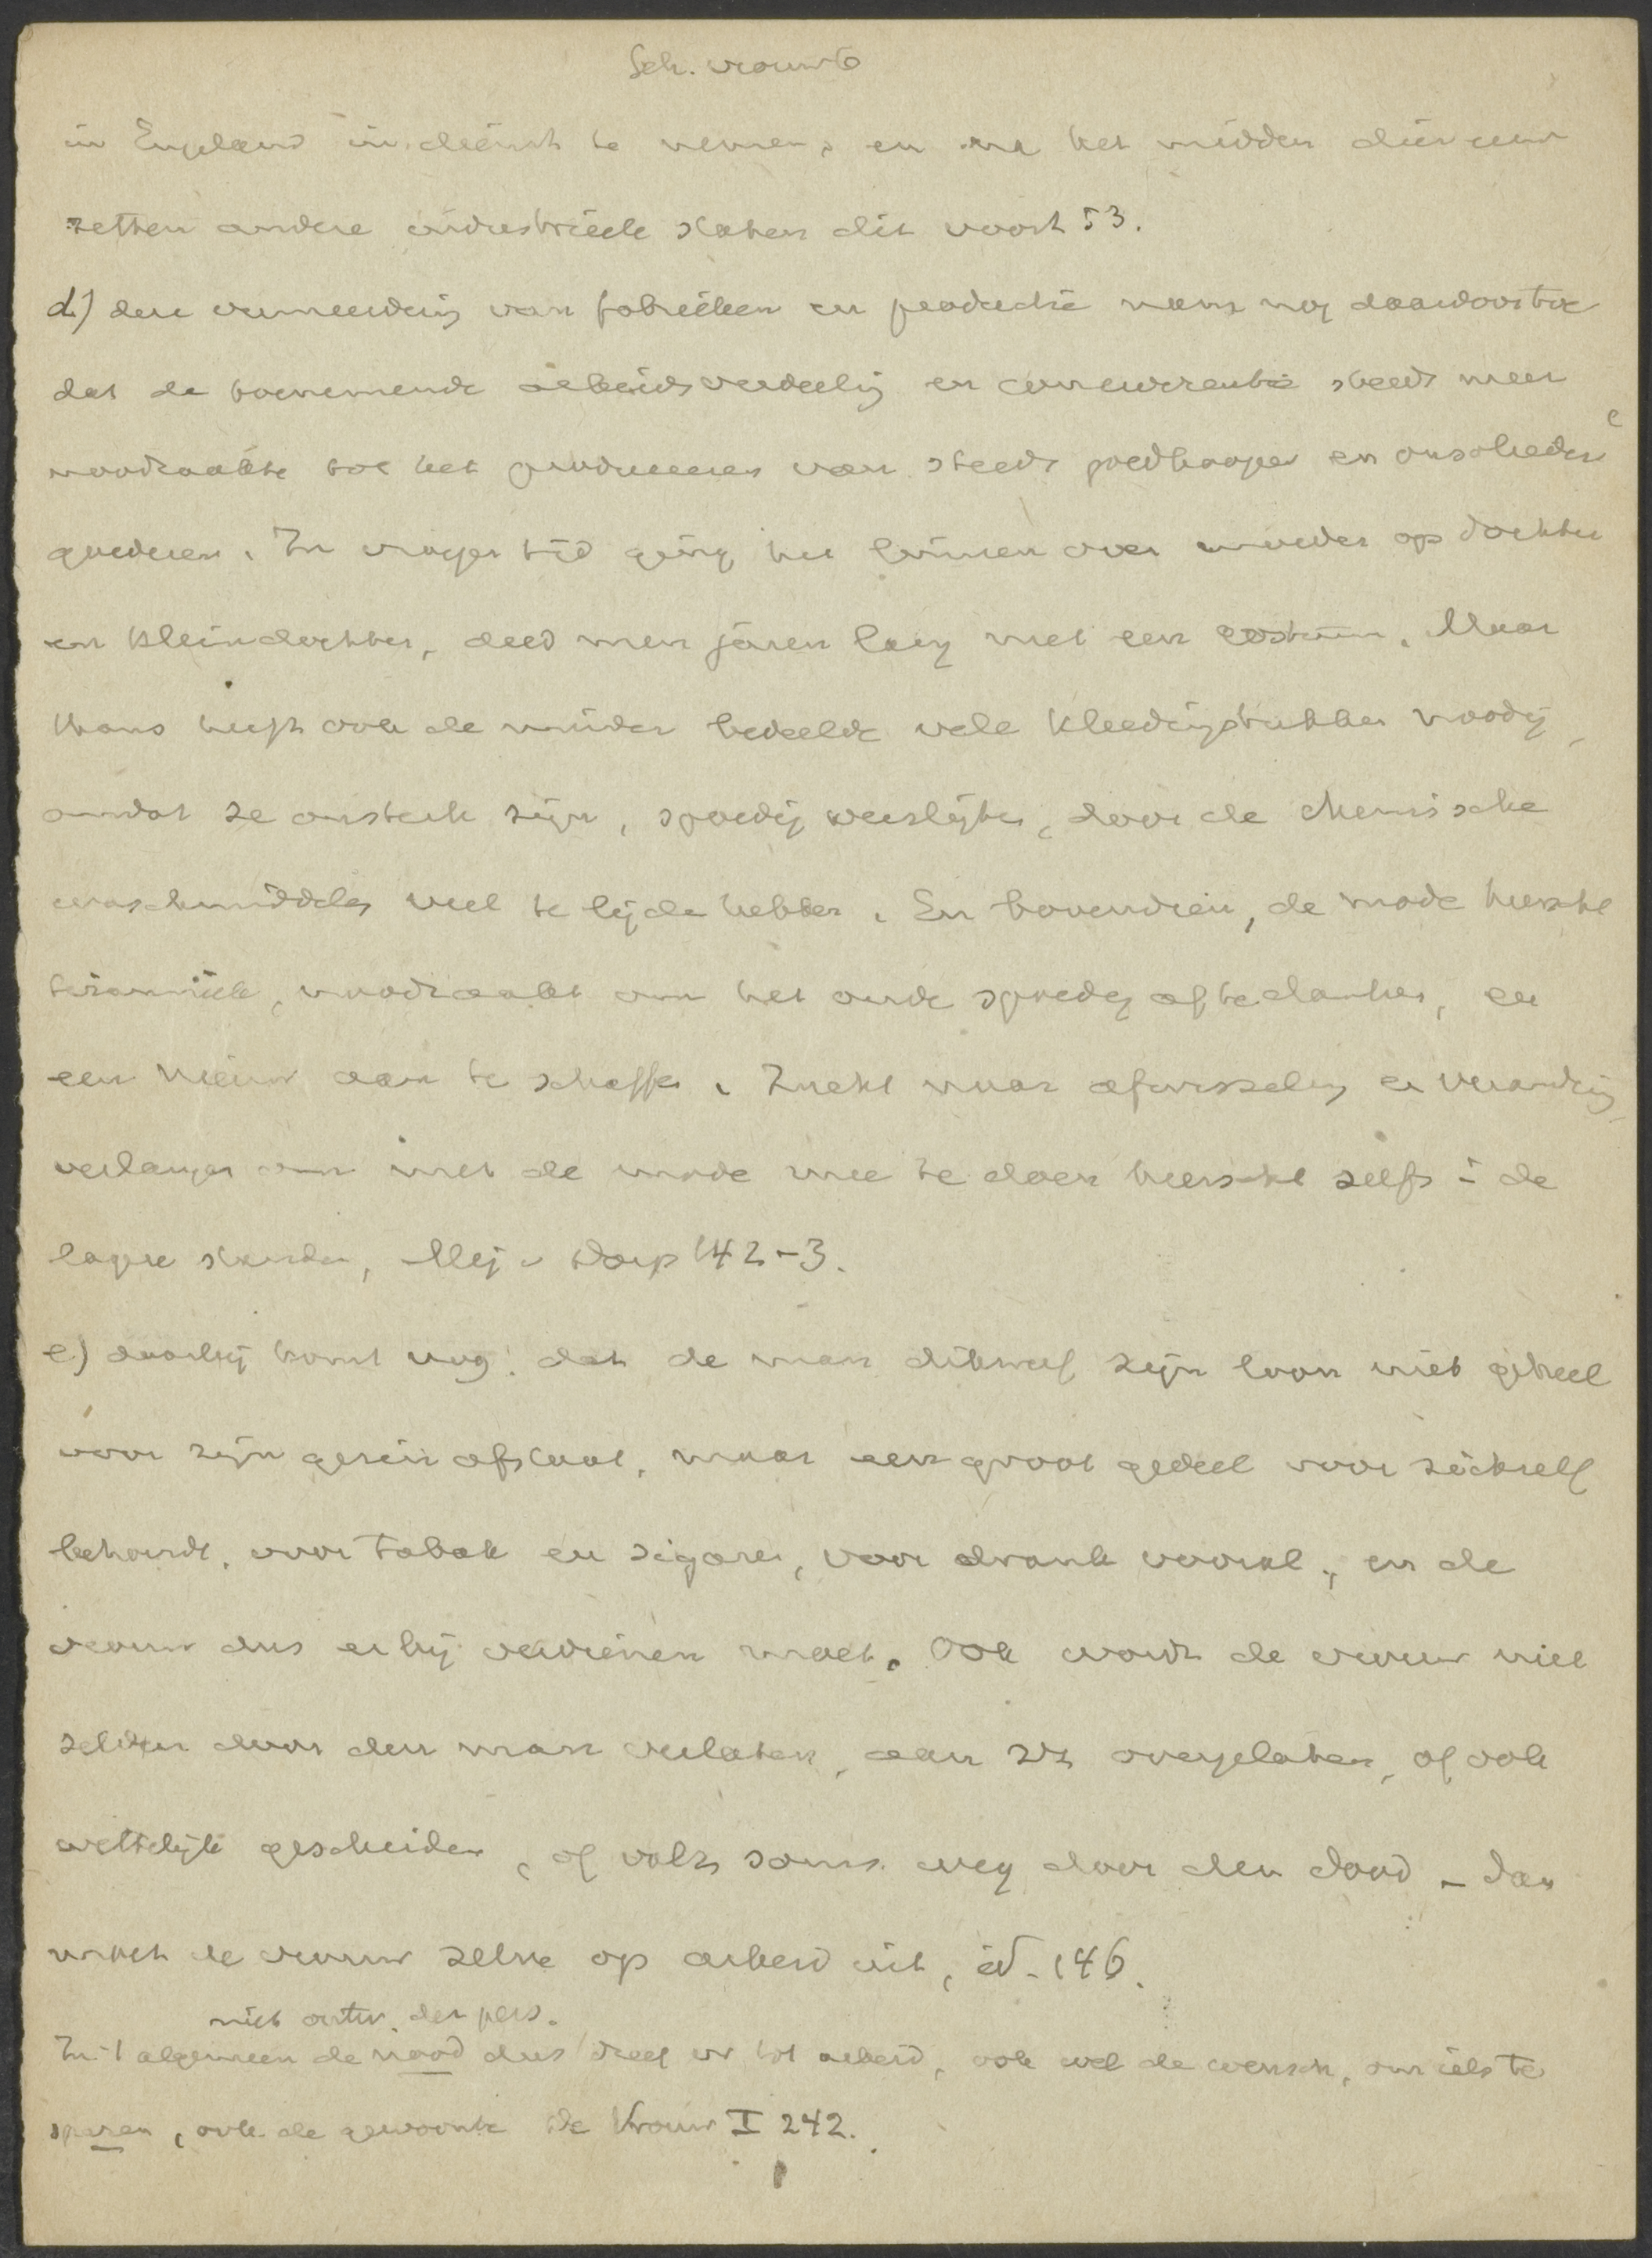 Sch. vrouw 6
in Engeland in dienst te nemen, en na het midden dier eeuw
zetten andere industrieele staten dit voort 53.
d) deze vermeerdering van fabrieken en productie nam nog daardoor toe
dat de toenemende arbeidsverdeeling en concurrentie steeds meer
noodzaakte tot het produceeren van steeds goedkooper en onsolieder
goederen. In vroeger tijd ging het linnen over moeder op dochter
en kleindochter, deed men jaren lang met een costuum. Maar
thans heeft ook de minder bedeelde vele kleedingstukken noodig,
omdat ze onsterk zijn, spoedig verslijten, door de chemische
waschmiddelen veel te lijden hebben. En bovendien, de mode heerscht
tiranniek, noodzaakt om het oude spoedig af te danken, en
een nieuw aan te schaffen. Zucht naar afwisseling en verandering,
verlangen om met de mode mee te doen heerscht zelfs i de
lagere standen, Mej v Dorp 142-3.
e) daarbij komt nog: dat de man dikwerf zijn loon niet geheel
voor zijn gezin afstaat, maar een groot gedeel voor zichzelf
behoudt, voor tabak en sigaren, voor drank vooral, en de
vrouw dus erbij verdienen moet. Ook wordt de vrouw niet
zelden door den man verlaten, aan zz overgelaten, of ook
wettelijk gescheiden, of valt soms weg door den dood - dan
moet de vrouw zelve op arbeid uit, id. 146.
niet ontw. der pers.
In 't algemeen de nood dus dreef vr tot arbeid, ook wel de wensch, om iets te
sparen, ook de gewoonte De Vrouw I 242.